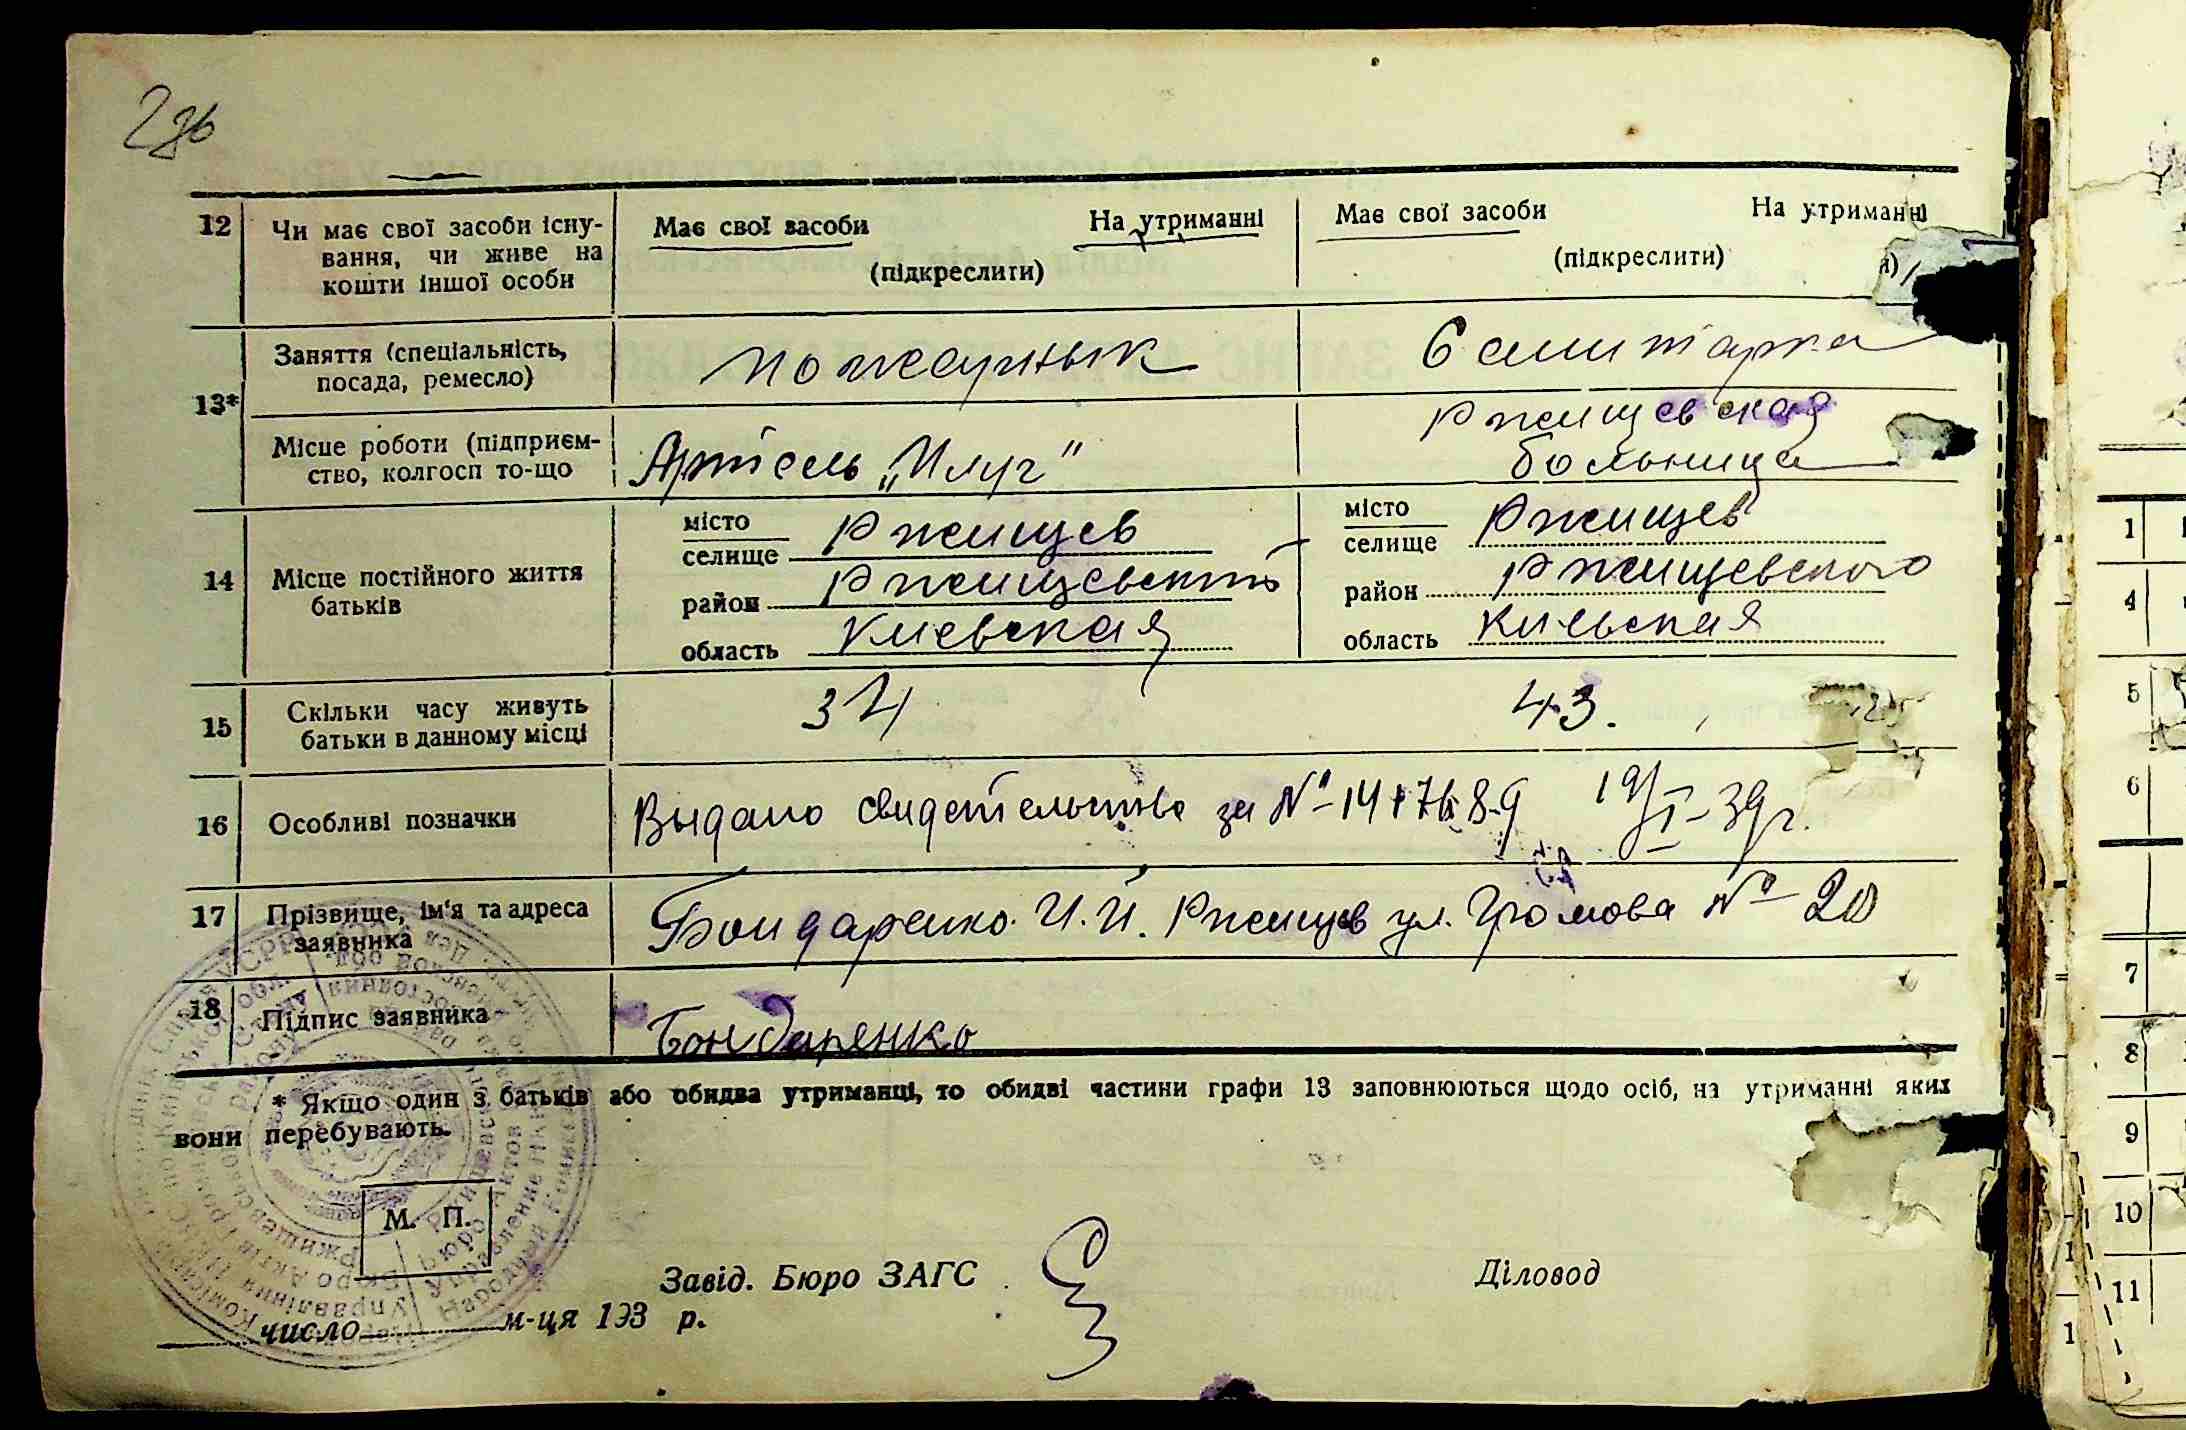 12
Чи має свої засоби існу-
вання, чи живе на
кошти іншої особи
Має свої засоби На утриманні
(підкреслити)
Має свої засоби На утриманні
(підкреслити)
13*
Заняття (спеціальність,
посада, ремесло)
пожарнык
Санитарка
Місце роботи (підприєм-
ство, колгосп то-що
Артель „Плуг"
Ржищевская
больница
14
Місце постійного життя
батьків
місто
селище Ржищев
район Ржищевского
область Киевская
місто
селище Ржищев
район Ржищевского
область Киевская
15
Скільки часу живуть
батьки в данному місці
34
43.
16
Особливі позначки
Выдано свидетельство за № 19/I-39 г.
17
Прізвище, ім'я та адреса
заявника
Бондаренко И. И. Ржищев ул. Громова № 20
18
Підпис заявника
Бондаренко
* Якщо один з батьків або обидва утриманці, то обидві частини графи 13 заповнюються щодо осіб, на утриманні яких
вони перебувають.
М. П.
Завід. Бюро ЗАГС
Діловод
число м-ця 193 р.
1
4
5
6
7
8
9
10
11